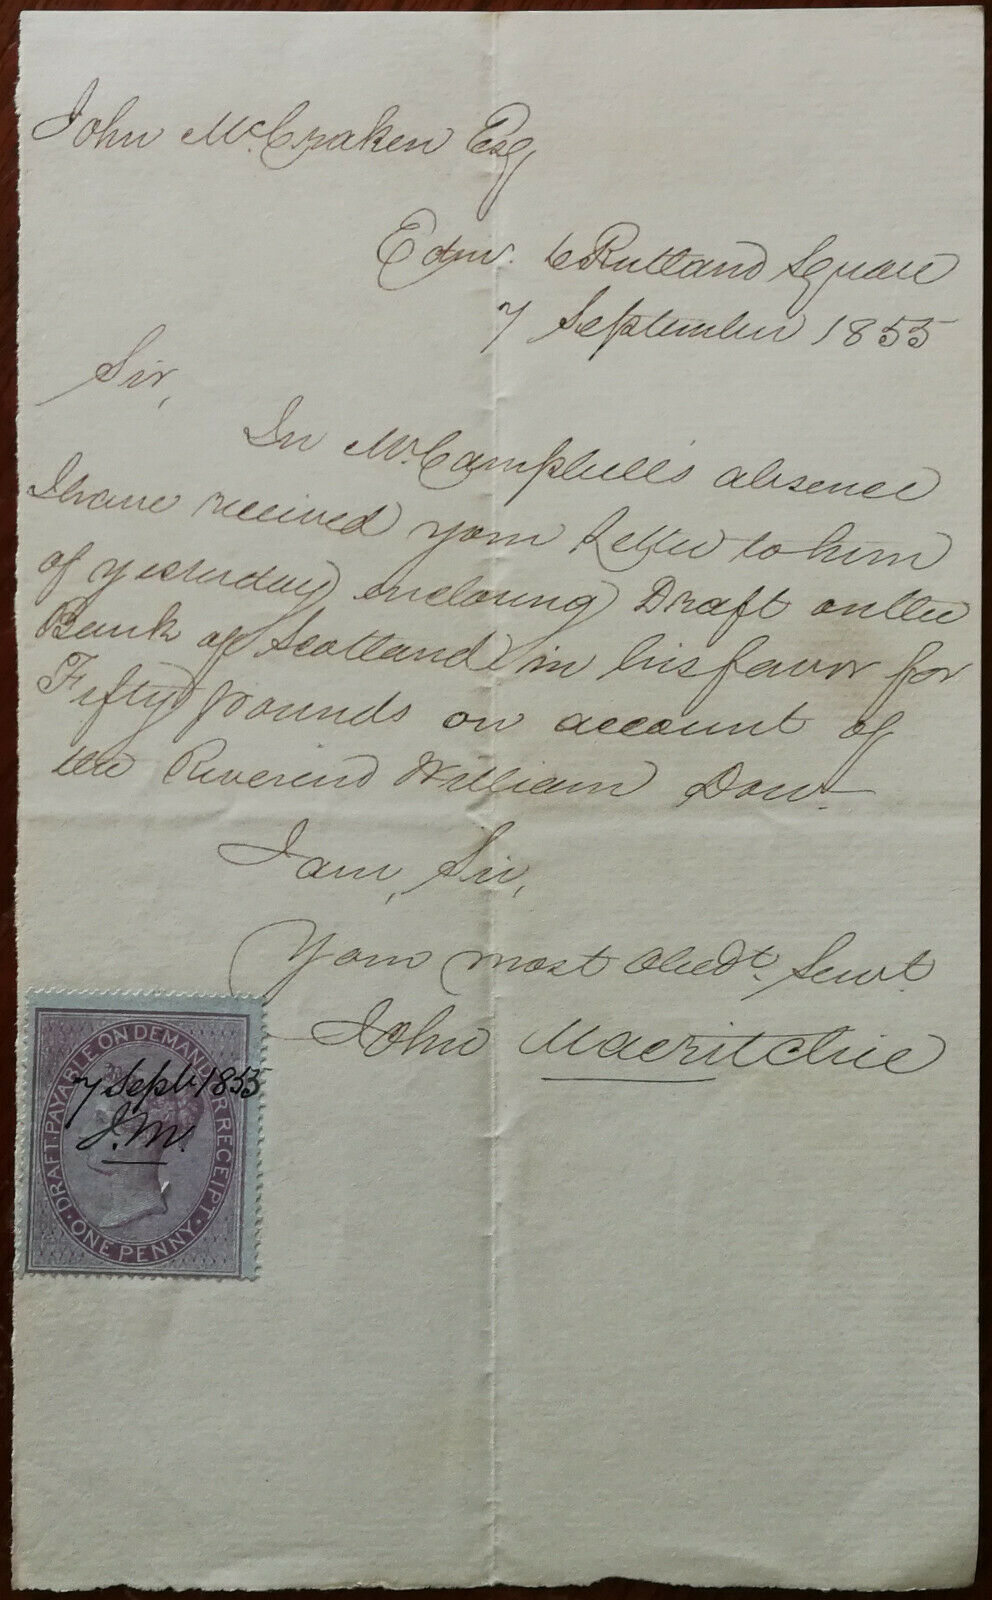 John McCraken Esq
Edinr. 6 Rutland Square
7 September 1855
Sir,
In Mr. Campbell's absence
I have received your Letter to him
of yesterday enclosing Draft on the
Bank of Scotland in his favor for
Fifty pounds on account of
the Reverend William Dow.
I am, Sir,
Your most Obedt. Servt.
John Macritchie
DRAFT·PAYABLE ON DEMAND OR RECEIPT·
ONE PENNY
7 Septr. 1855
J.M.